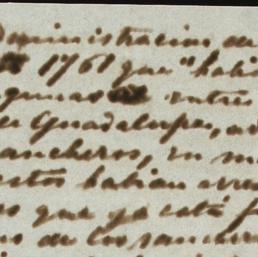 Administracion de
1761 que "habi
gunas entre
de Guadalupe, a
ancheros, en m
estos habian arre
os que ya está f
os de los ranchero